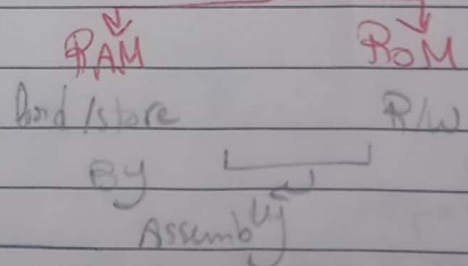 RAM ROM
/store R/W
By
Assembly